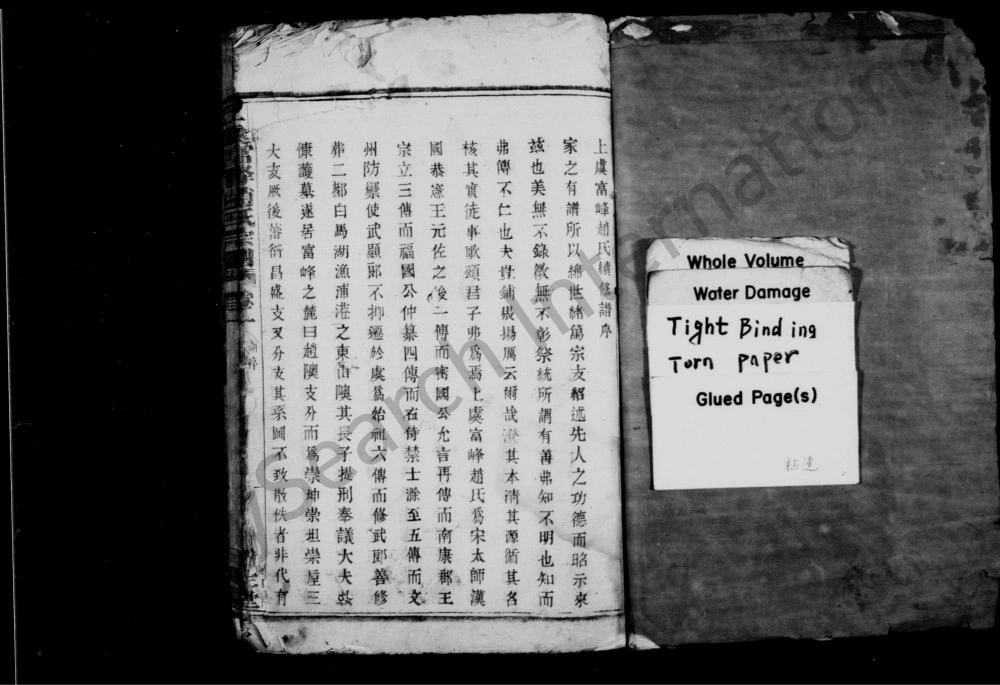 上虞富峰趙氏續修譜序
家之有譜所以綿世緒篤宗支紹述先人之功德而昭示來
茲也美無不錄徵無不彰祭統所謂有善弗知不明也知而
弗傳不仁也夫豈鋪張揚厲云爾哉澄其本清其源循其名
核其實徒事歌頌君子弗為焉上虞富峰趙氏為宋太師漢
國恭憲王元佐之後一傳而密國公允言再傳而南康郡王
宗立三傳而福國公仲纂四傳而右侍禁士滁至五傳而文
州防禦使武顯郎不抑遷於虞為始祖六傳而修武郎善修
葬二都白馬湖漁浦港之東山隩其長子提刑奉議大夫
慷護墓遂居富峰之麓曰趙隩支分而為崇坤崇坦崇垕三
大支厥後蕃衍昌盛支又分支其系圖不致散佚者非代有
Whole Volume
Water Damage
Tight Binding
Torn paper
Glued Page(s)
粘連
ySearch International